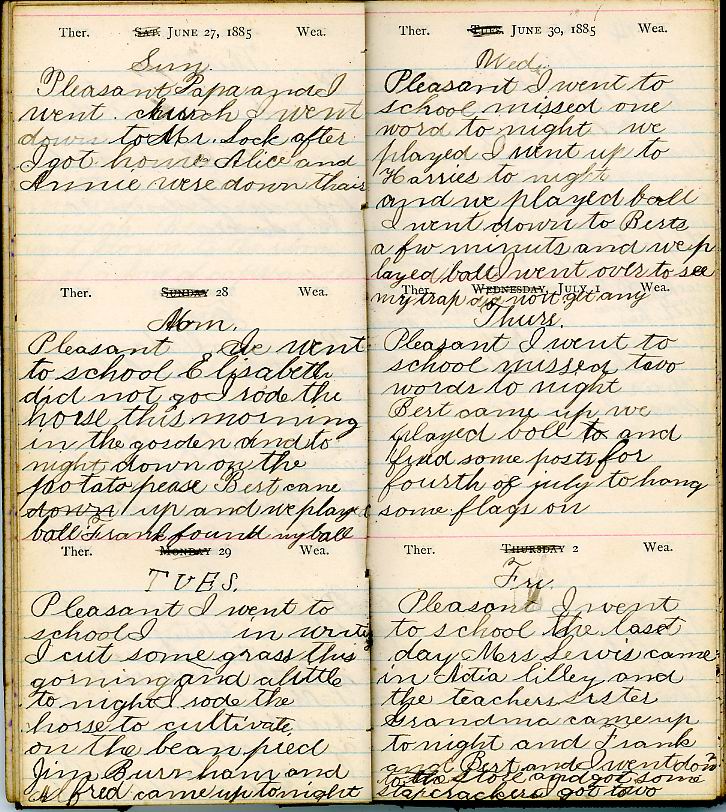 Ther. SAT. JUNE 27, 1885 Wea.
Sun.
Pleasant Papa and I
went church I went
down to Mr. Lock after
I got home Alice and
Annie were down thair
Ther. SUNDAY 28 Wea.
Mon.
Pleasant I went
to school Elisabeth
did not go I rode the
horse this morning
in the gosden and to
night down on the
potato pease Bert cane
down up and we played
ball Frank found my ball
Ther. MONDAY 29 Wea.
TUES.
Pleasant I went to
school I in write
I cut some grass this
gorning and alittle
to night I rode the
horse to cultivate
on the bean pied
Jim Burnham and
Alfred came up tonight
Ther. TUES. JUNE 30, 1885 Wea.
Wed.
Pleasant I went to
school missed one
word to night we
played I went up to
Harries to night
and we played ball
I went down to Berts
a fw minuts and we p
layed ball I went over to see
Ther. WEDNESDAY, JULY 1 Wea.
my trap did not get any
Thurs.
Pleasant I went to
school missed two
words to night
Bert came up we
played boll to and
find some posts for
fourth of july to hang
some flags on
Ther. THURSDAY 2 Wea.
Fri.
Pleasant I went
to school the last
day Mrs Lewis came
in Lilley and
the teachers sister
Grandma came up
to night and Frank
and Bert and I went down
to the store and got some
crackers I got two